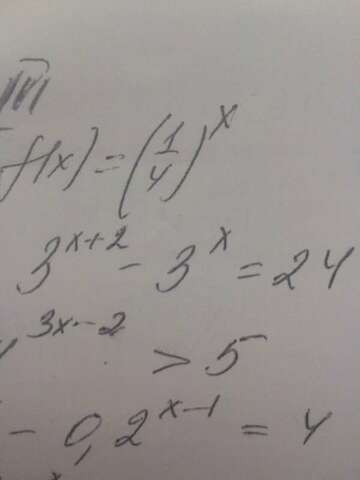 f(x) = (1/4)^x
3^{x+2} - 3^x = 24
^{3x-2} > 5
- 0,2^{x-1} = 4